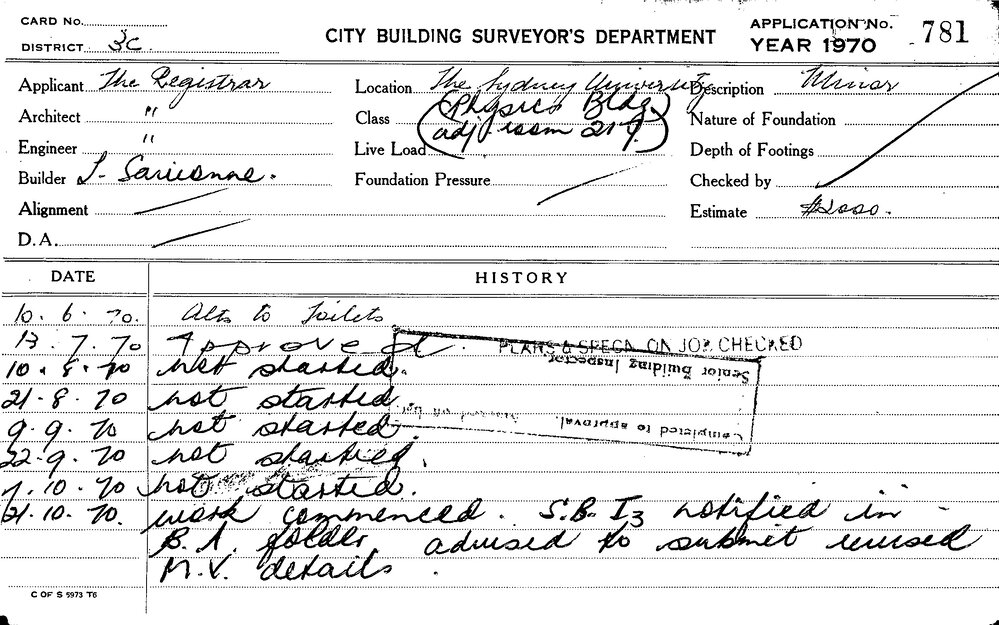 CARD No.
DISTRICT 3C
CITY BUILDING SURVEYOR'S DEPARTMENT
APPLICATION No. 781
YEAR 1970
Applicant The Registrar
Location The Sydney University
Description Minor
Architect "
Class (Physics Bldg.
Nature of Foundation
Engineer "
Live Load adj room 219.)
Depth of Footings
Builder
Foundation Pressure
Checked by
Alignment
Estimate $2000.
D.A.
DATE HISTORY
10. 6. 70. Alts to Toilets
13. 7. 70 Approved.
PLANS & SPECN. ON JOB CHECKED
Senior Building Inspector
Completed to approval.
10. 8. 70 not started.
21. 8. 70 not started.
9. 9. 70 not started.
22. 9. 70 not started.
7. 10. 70 not started.
21. 10. 70. work commenced. S.B.I3 notified in -
B.A. folder advised to submit revised
M.V. details.
C OF S 5973 T6